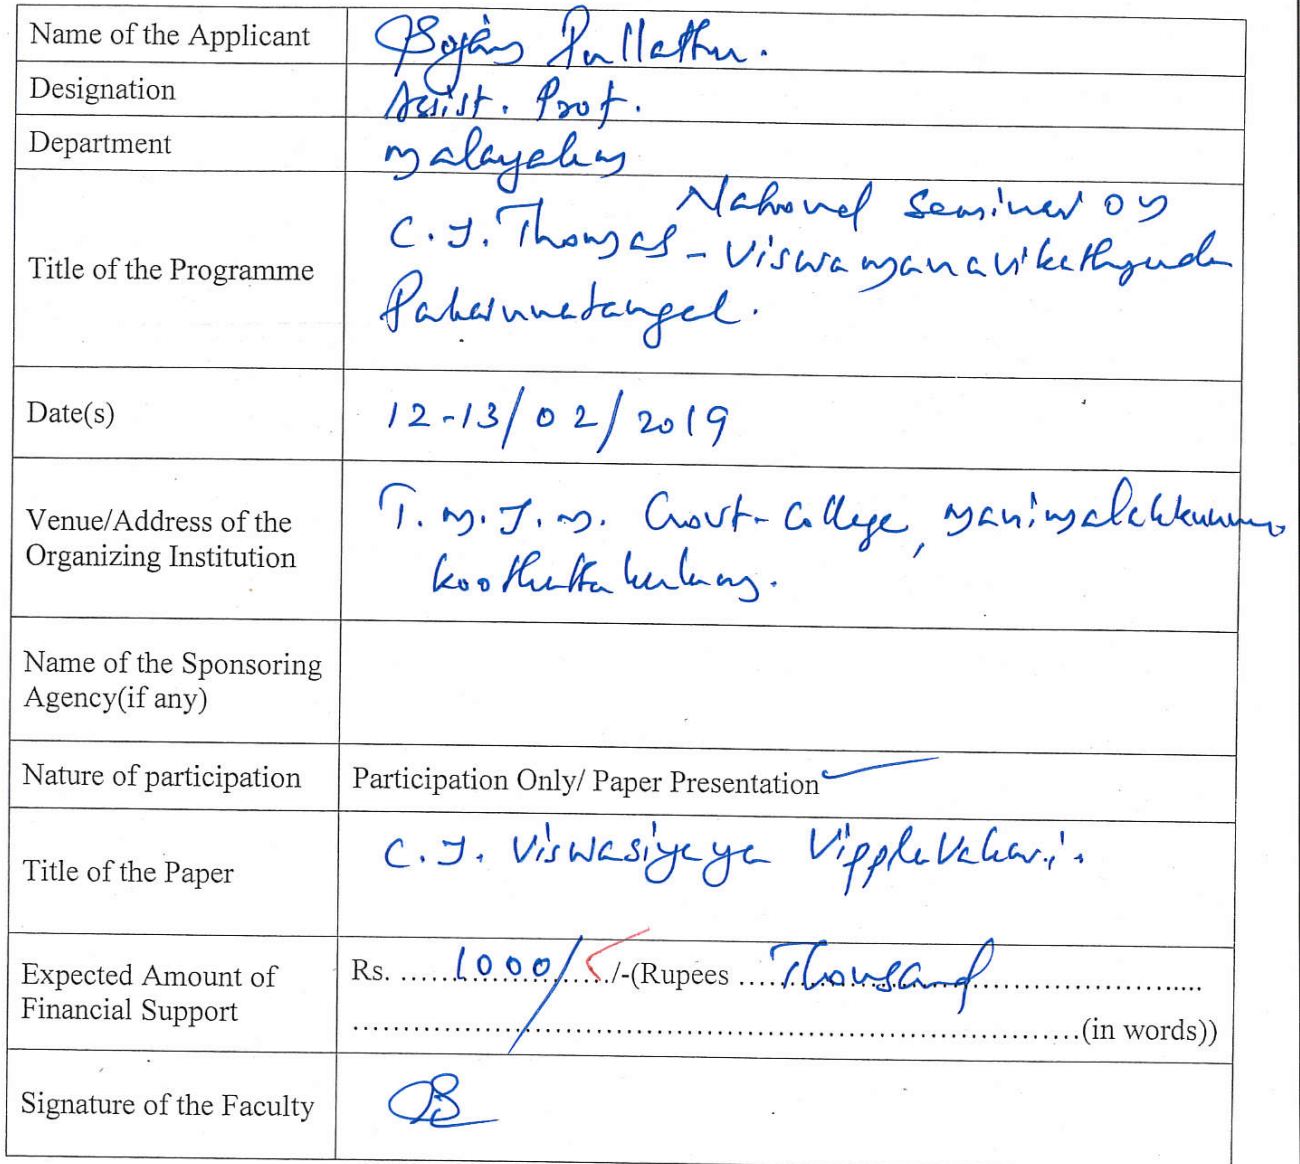 Name of the Applicant Bojan Pullathu.
Designation Assist. Prof.
Department Malayalam
National Seminar on
Title of the Programme C.J. Thomas - Viswamanavikathayude
Pakarnnatangal.
Date(s) 12-13/02/2019
Venue/Address of the Organizing Institution T.M.J.M. Govt. College, Manimalakkunnu
Koothattukulam.
Name of the Sponsoring
Agency(if any)
Nature of participation Participation Only/ Paper Presentation
Title of the Paper C.J. Viswasiyaya Vipplavakari.
Expected Amount of
Financial Support Rs. .....1000/...../-(Rupees ...Thousand..........................
.......................................................................(in words))
Signature of the Faculty